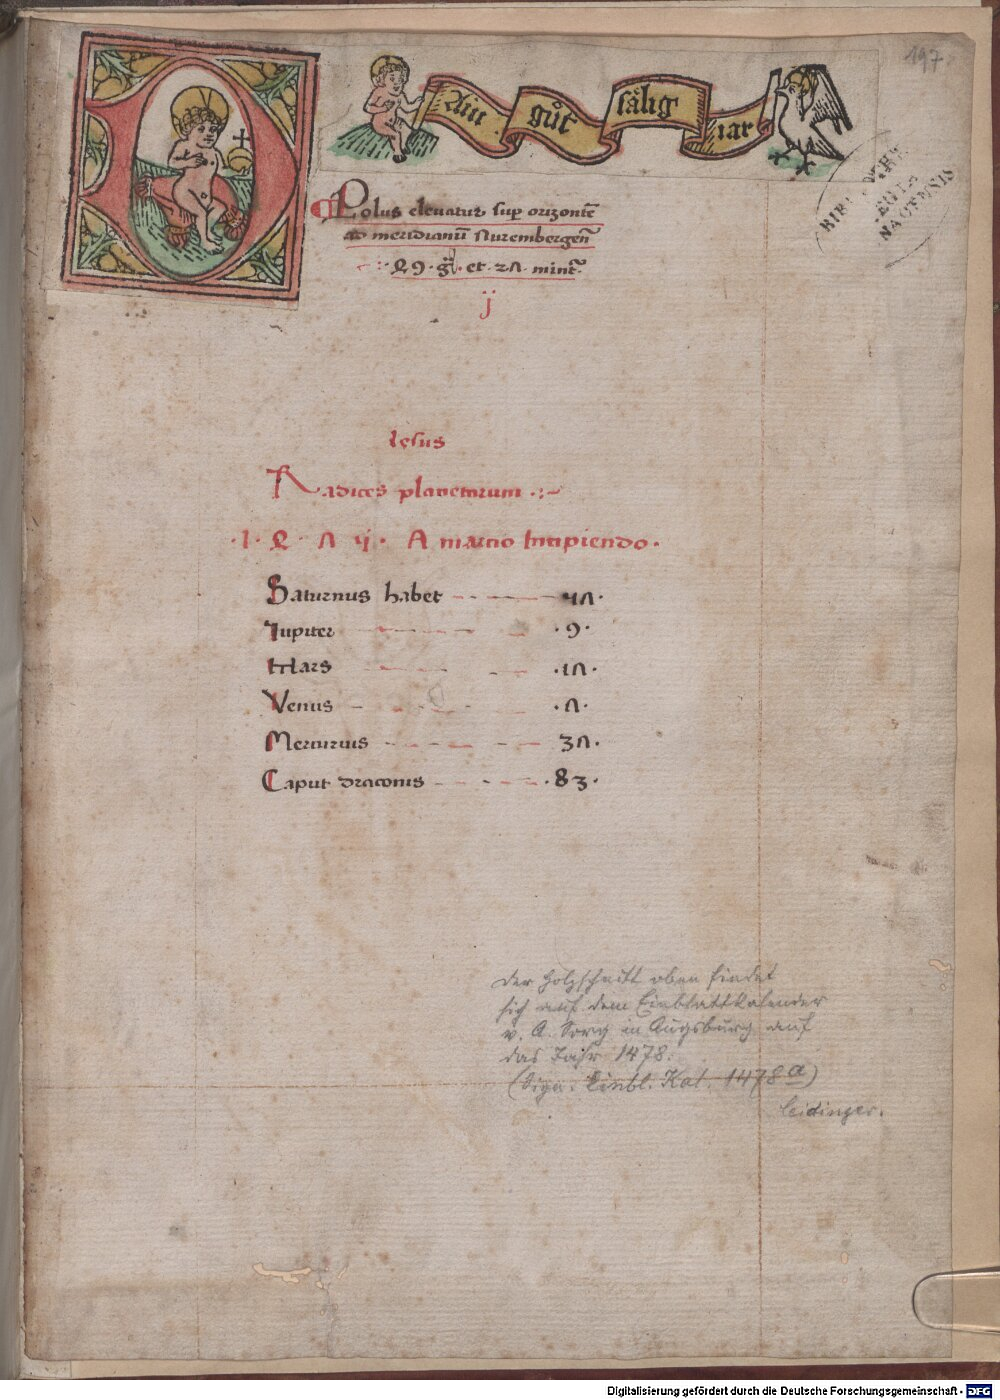 197
Ain guͦt sälig iar
Polus eleuatur sup orizontē
ad meridianū Nurembergeñ
49 g̃ et 27 minut̃
ij
Iesus
Radices planetarum
1 4 7 ij A marcio Incipiendo
Saturnus habet 47
Iupiter 9
Mars 17
Venus 7
Mercurius 37
Caput draconis 83
BIBLIOTHECA
REGIA
MONACENSIS
Der Holzschnitt oben findet
sich auf dem Einblattkalender
v. A. Sorg in Augsburg auf
das Jahr 1478.
(Sign. Einbl. Kal. 1478 a)
Leidinger.
Digitalisierung gefördert durch die Deutsche Forschungsgemeinschaft - DFG